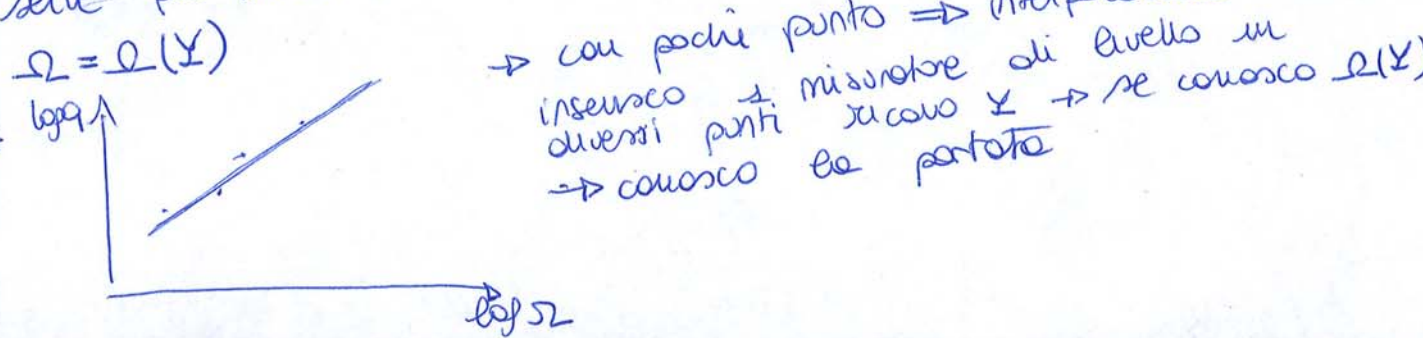 Ω = Ω(Y)
→ con pochi punto ⇒
inserisco 1 misuratore di livello in
diversi punti ricavo Y → se conosco Ω(Y)
⇒ conosco la portata
log q
log Ω